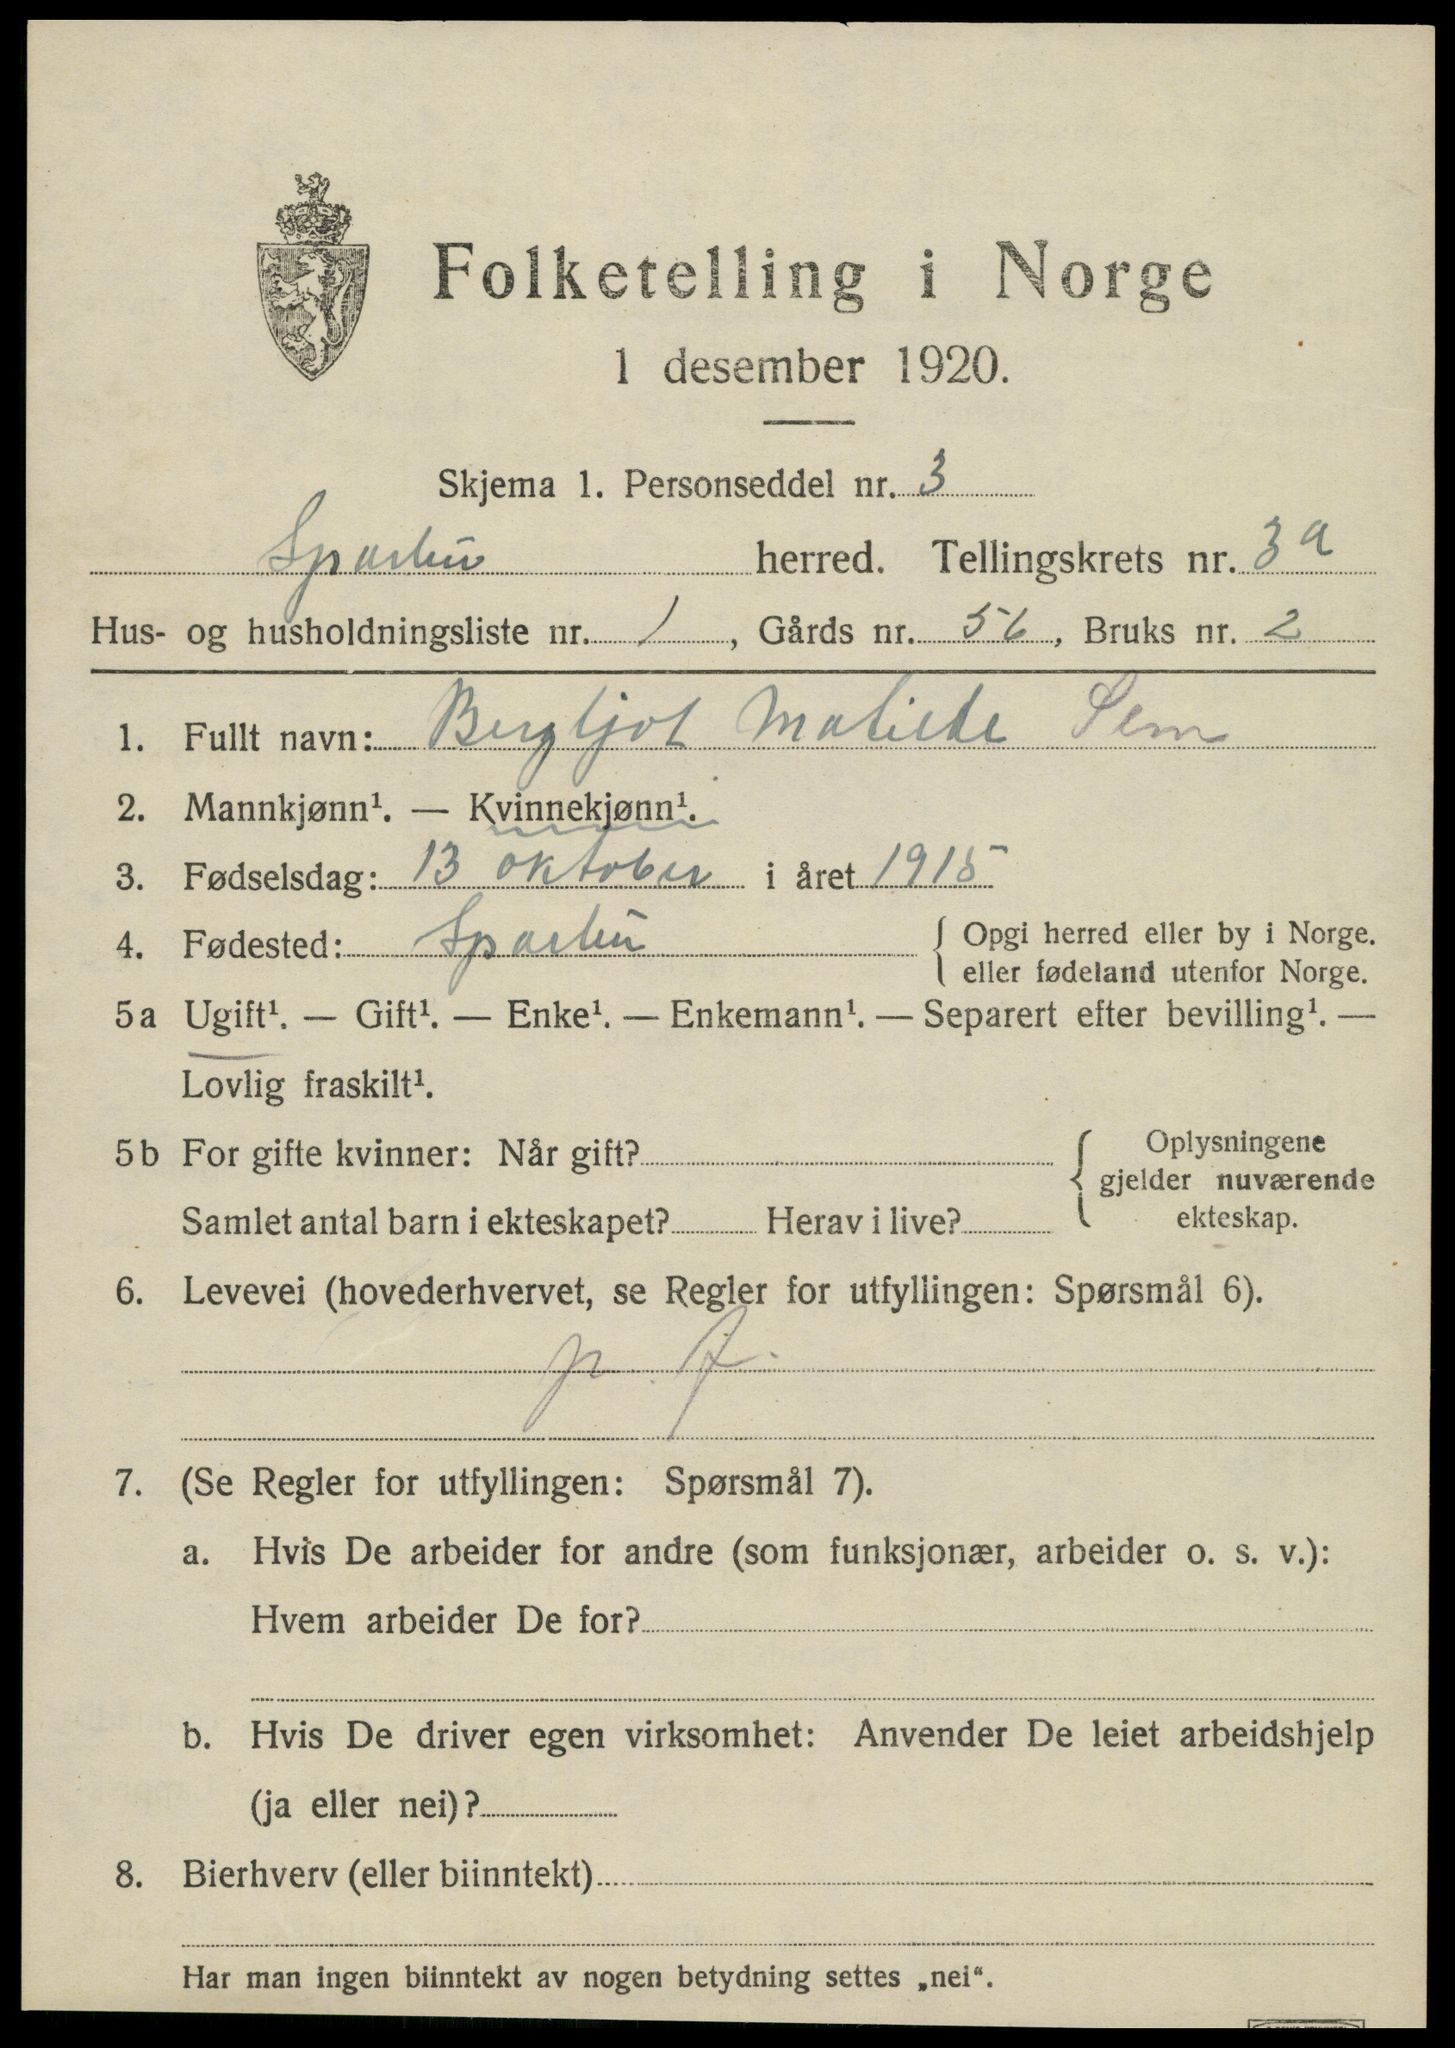 Folketelling i Norge
1 desember 1920.
Skjema 1. Personseddel nr. 3
Sparbu herred. Tellingskrets nr. 3a
Hus- og husholdningsliste nr. 1, Gårds nr. 56, Bruks nr. 2
1. Fullt navn: Bergljot Matilde Sem
2. Mannkjønn¹. — Kvinnekjønn¹.
3. Fødselsdag: 13 oktober i året 1915
4. Fødested: Sparbu { Opgi herred eller by i Norge.
eller fødeland utenfor Norge.
5a Ugift¹. — Gift¹. — Enke¹. — Enkemann¹. — Separert efter bevilling¹. —
Lovlig fraskilt¹.
5b For gifte kvinner: Når gift? { Oplysningene
gjelder nuværende
Samlet antal barn i ekteskapet? Herav i live? ekteskap.
6. Levevei (hovederhvervet, se Regler for utfyllingen: Spørsmål 6).
7. (Se Regler for utfyllingen: Spørsmål 7).
a. Hvis De arbeider for andre (som funksjonær, arbeider o. s. v.):
Hvem arbeider De for?
b. Hvis De driver egen virksomhet: Anvender De leiet arbeidshjelp
(ja eller nei)?
8. Bierhverv (eller biinntekt)
Har man ingen biinntekt av nogen betydning settes „nei“.